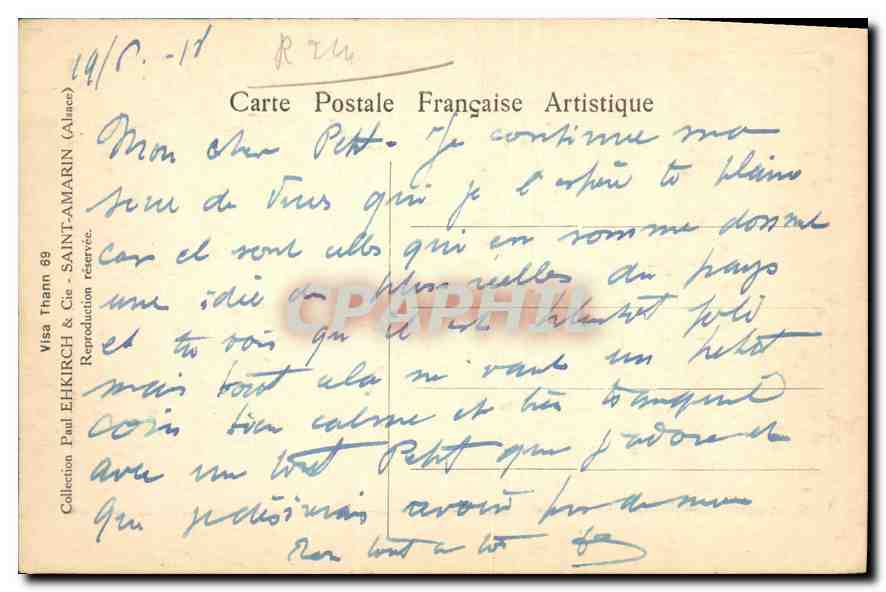 19/6.-18
Carte Postale Française Artistique
Mon cher Petit - Je continue ma
serie de vues qui je l'espère te plaira
car ce sont elles qui en somme donnent
une idée des plus réelles du pays
et tu vois qu'il est plutôt joli
mais tout cela ne vaut un petit
coin bien calme et bien tranquil
avec un tout Petit que j'adore et
que je désirerais avoir près de moi
tout a toi
Visa Thann 69
Collection Paul EHKIRCH & Cie - SAINT-AMARIN (Alsace)
Reproduction réservée.
CPAPHIL